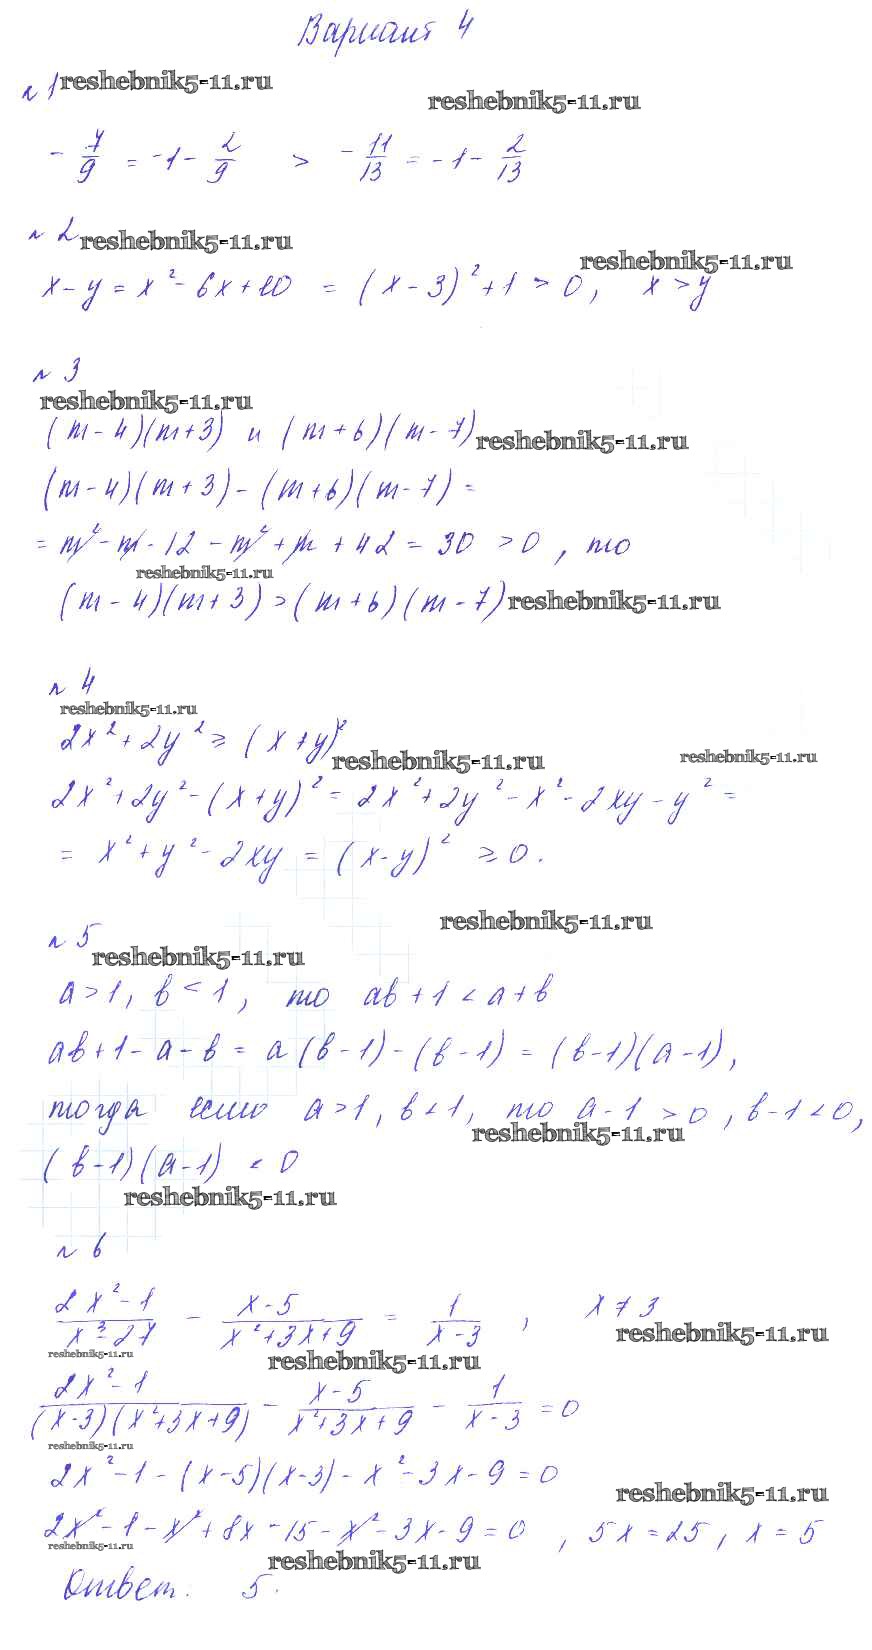 Вариант 4
n 1 reshebnik5-11.ru
reshebnik5-11.ru
- 7/9 = -1 - 2/9 > - 11/13 = -1 - 2/13
n 2 reshebnik5-11.ru
reshebnik5-11.ru
x - y = x² - 6x + 10 = (x - 3)² + 1 > 0, x > y
n 3
reshebnik5-11.ru
(m - 4)(m + 3) и (m + 6)(m - 7) reshebnik5-11.ru
(m - 4)(m + 3) - (m + 6)(m - 7) =
= m² - m - 12 - m² + m + 42 = 30 > 0, то
reshebnik5-11.ru
(m - 4)(m + 3) > (m + 6)(m - 7) reshebnik5-11.ru
n 4
reshebnik5-11.ru
2x² + 2y² ≥ (x + y)²
reshebnik5-11.ru reshebnik5-11.ru
2x² + 2y² - (x + y)² = 2x² + 2y² - x² - 2xy - y² =
= x² + y² - 2xy = (x - y)² ≥ 0.
reshebnik5-11.ru
n 5
reshebnik5-11.ru
a > 1, b < 1, то ab + 1 < a + b
ab + 1 - a - b = a(b - 1) - (b - 1) = (b - 1)(a - 1),
тогда если a > 1, b < 1, то a - 1 > 0, b - 1 < 0,
reshebnik5-11.ru
(b - 1)(a - 1) < 0
reshebnik5-11.ru
n 6
(2x² - 1)/(x³ - 27) - (x - 5)/(x² + 3x + 9) = 1/(x - 3), x ≠ 3
reshebnik5-11.ru
reshebnik5-11.ru reshebnik5-11.ru
(2x² - 1)/((x - 3)(x² + 3x + 9)) - (x - 5)/(x² + 3x + 9) - 1/(x - 3) = 0
reshebnik5-11.ru
2x² - 1 - (x - 5)(x - 3) - x² - 3x - 9 = 0
reshebnik5-11.ru
2x² - 1 - x² + 8x - 15 - x² - 3x - 9 = 0, 5x = 25, x = 5
reshebnik5-11.ru reshebnik5-11.ru
Ответ. 5.